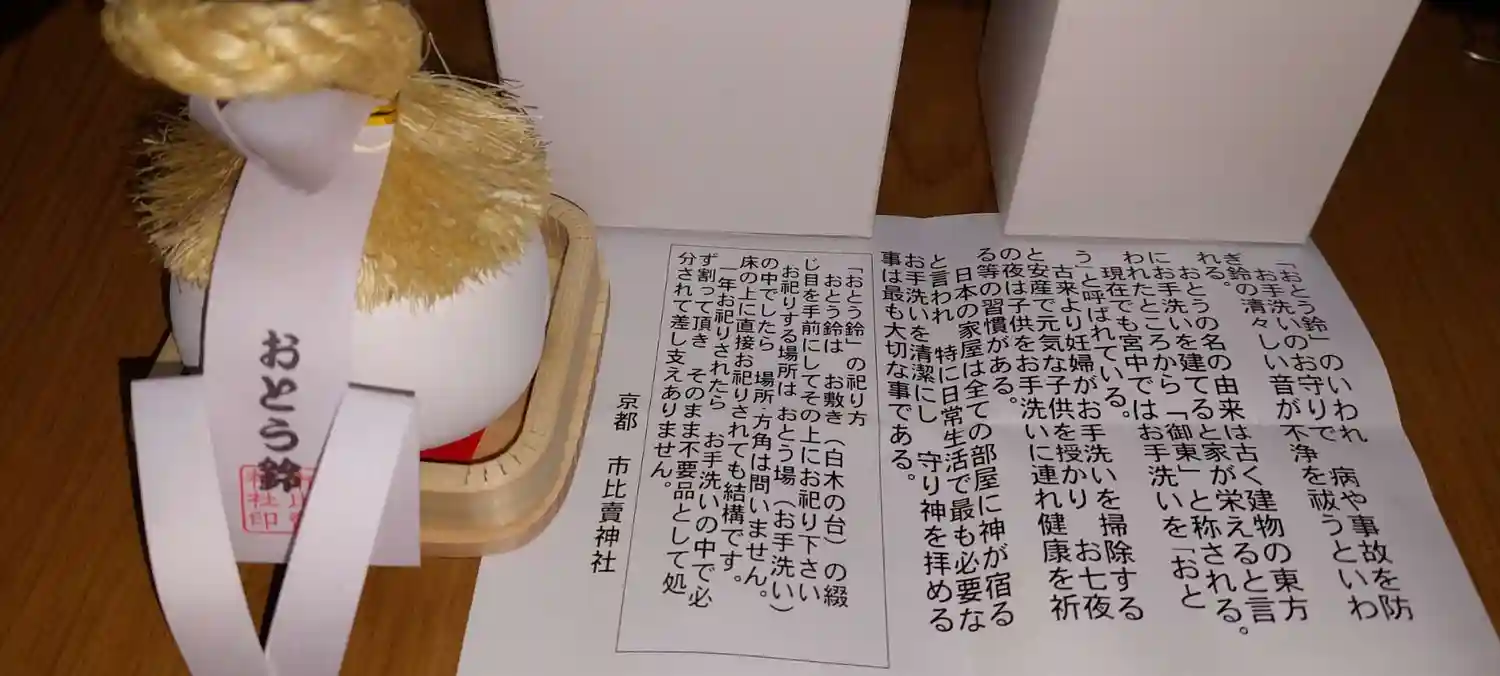 「おとう鈴」のいわれ
お手洗いのお守りで　病や事故を防
ぎ鈴の清々しい音が不浄を祓うといわ
れる。
おとうの名の由来は古く建物の東方
にお手洗いを建てると家が栄えると言
われたところから「御東」と称される。
現在でも宮中ではお手洗いを「おと
う」と呼ばれている。
古来より妊婦がお手洗いを掃除する
と安産で元気な子供を授かり　お七夜
の夜は子供をお手洗いに連れ健康を祈
る等の習慣がある。
日本の家屋は全ての部屋に神が宿る
と言われ　特に日常生活で最も必要な
お手洗いを清潔にし　守り神を拝める
事は最も大切な事である。
「おとう鈴」の祀り方
おとう鈴は　お敷き（白木の台）の綴
じ目を手前にしてその上にお祀り下さい
お祀りする場所は おとう場（お手洗い）
の中でしたら　場所・方角は問いません。
床の上に直接お祀りされても結構です。
一年お祀りされたら　お手洗いの中で必
ず割って頂き　そのまま不要品として処
分されて差し支えありません。
京都　市比賣神社
おとう鈴
社印